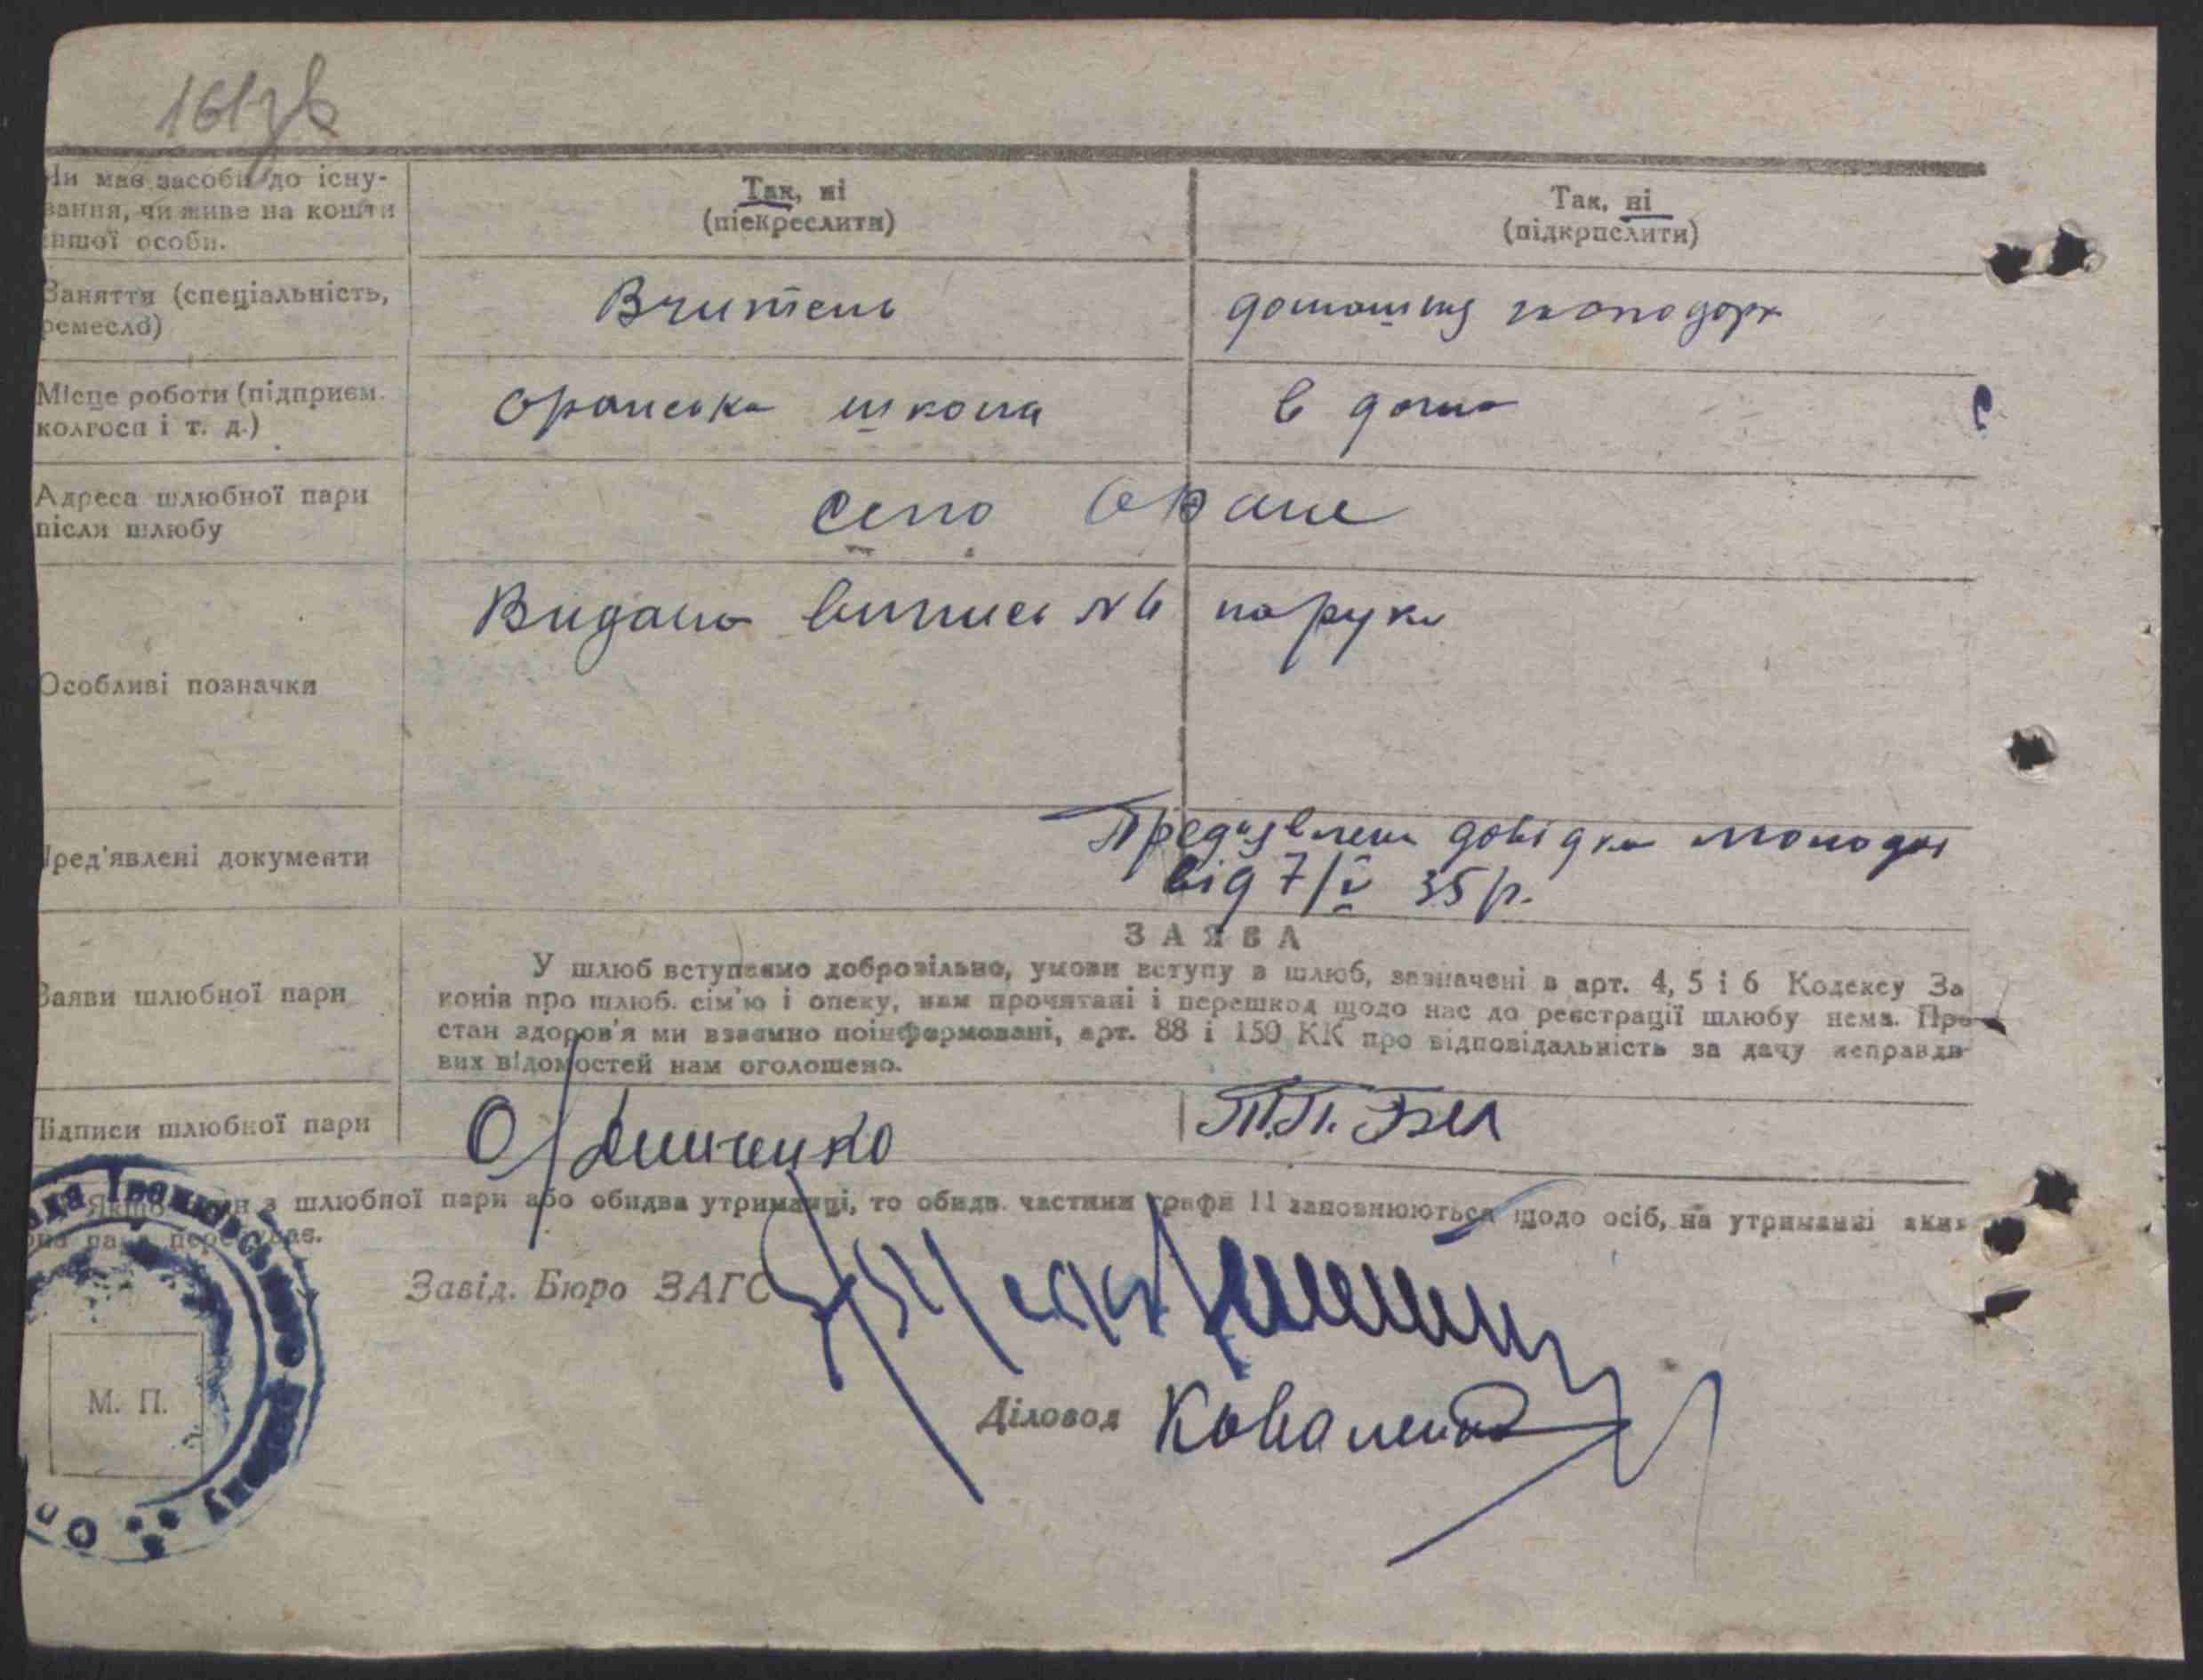 161зв
Чи має засоби до існу-
вання, чи живе на кошти
іншої особи.
Так, ні
(піекреслити)
Так, ні
(підкрпслити)
Заняття (спеціальність,
ремесло)
Вчитель
домашня
Місце роботи (підприєм.
колгосп і т. д.)
Оранська школа
в дома
Адреса шлюбної пари
після шлюбу
село Оране
Особливі позначки
Видано випись №6 на руки
Пред'явлені документи
довідка молодої
від 7/V 35 р.
ЗАЯВА
Заяви шлюбної пари
У шлюб вступаємо добровільно, умови вступу в шлюб, зазначені в арт. 4, 5 і 6 Кодексу За
конів про шлюб. сім'ю і опеку, нам прочитані і перешкод щодо нас до реєстрації шлюбу нема. Про
стан здоров'я ми взаємно поінформовані, арт. 88 і 150 КК про відповідальність за дачу неправди-
вих відомостей нам оголошено.
Підписи шлюбної пари
Т.П.
Якщо один з шлюбної пари або обидва утриманці, то обидв. частини графи 11 заповнюються щодо осіб, на утриманні яких
перебуває.
Завід. Бюро ЗАГС
М. П.
Діловод Коваленко